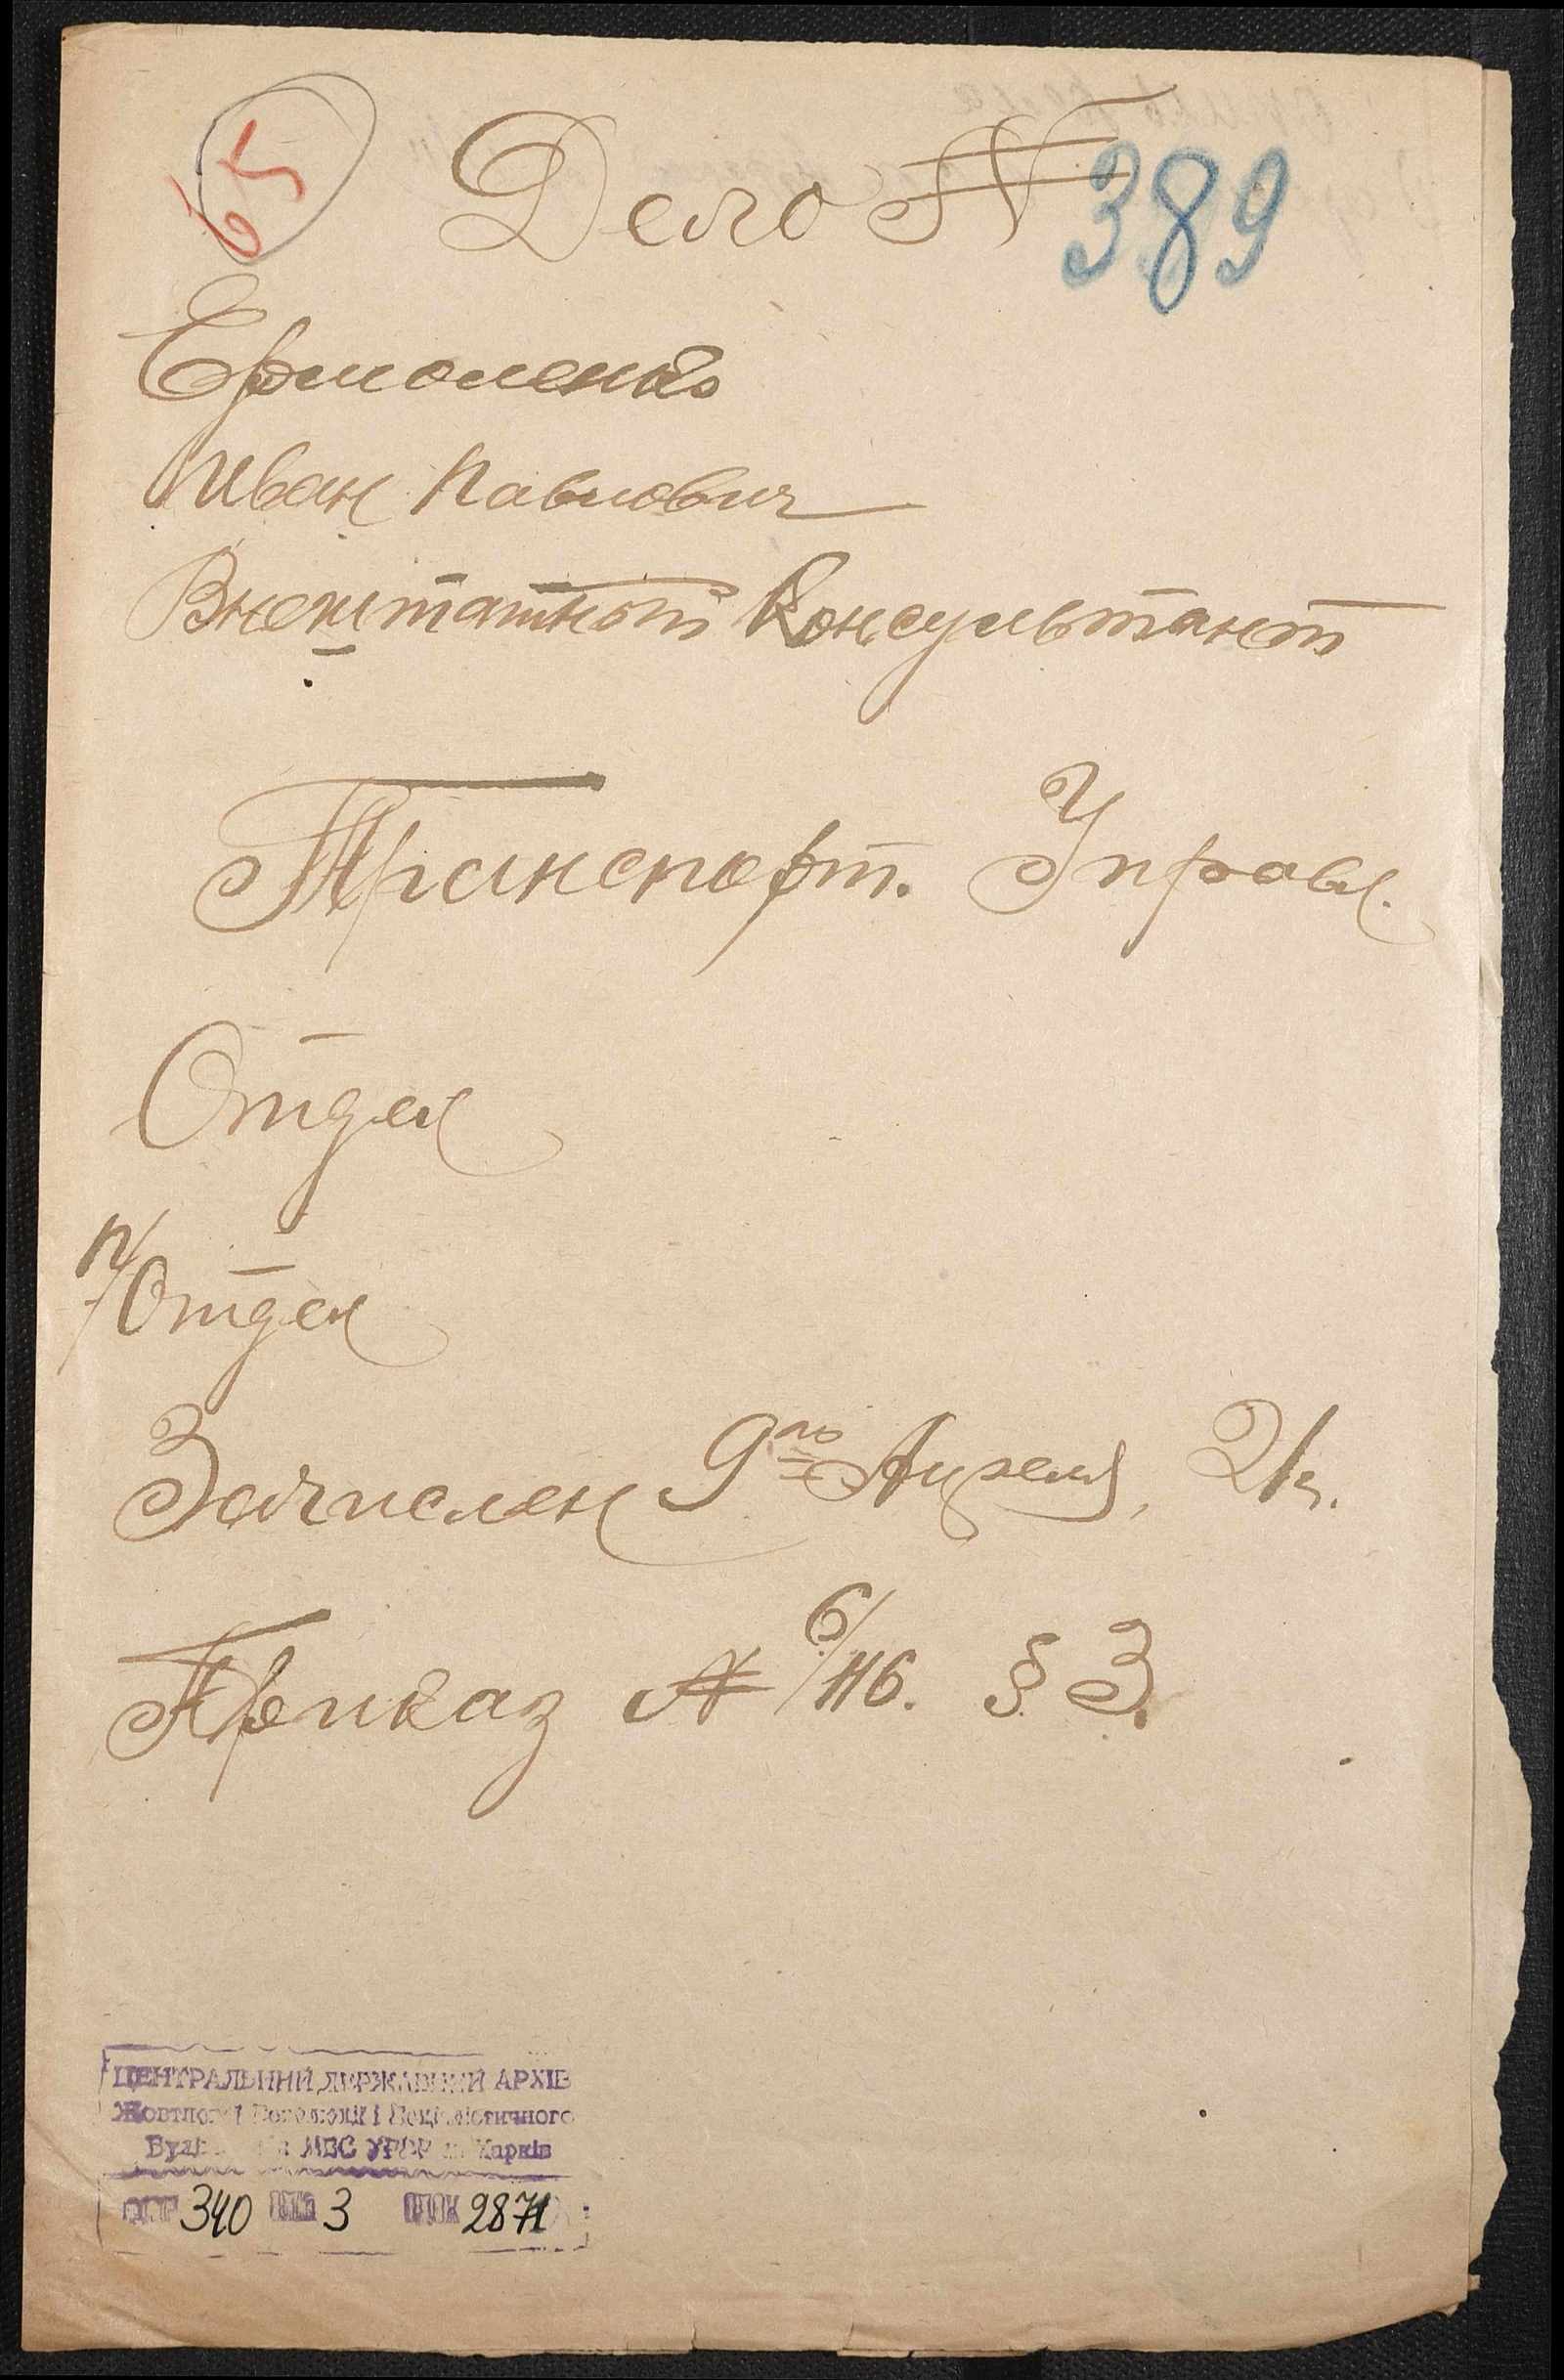 65
Дело № 389
Ермоленко
Иван Павлович
Внештатный Консультант
Транспорт. Управл.
Отдел
п/Отдел
Зачислен 9го Апреля, 21г.
Приказ № 6/116. § 3.
ЦЕНТРАЛЬНИЙ ДЕРЖАВНИЙ АРХІВ
Жовтневої Революції і Соціалістичного
МВС УРСР м. Харків
340 3 2871